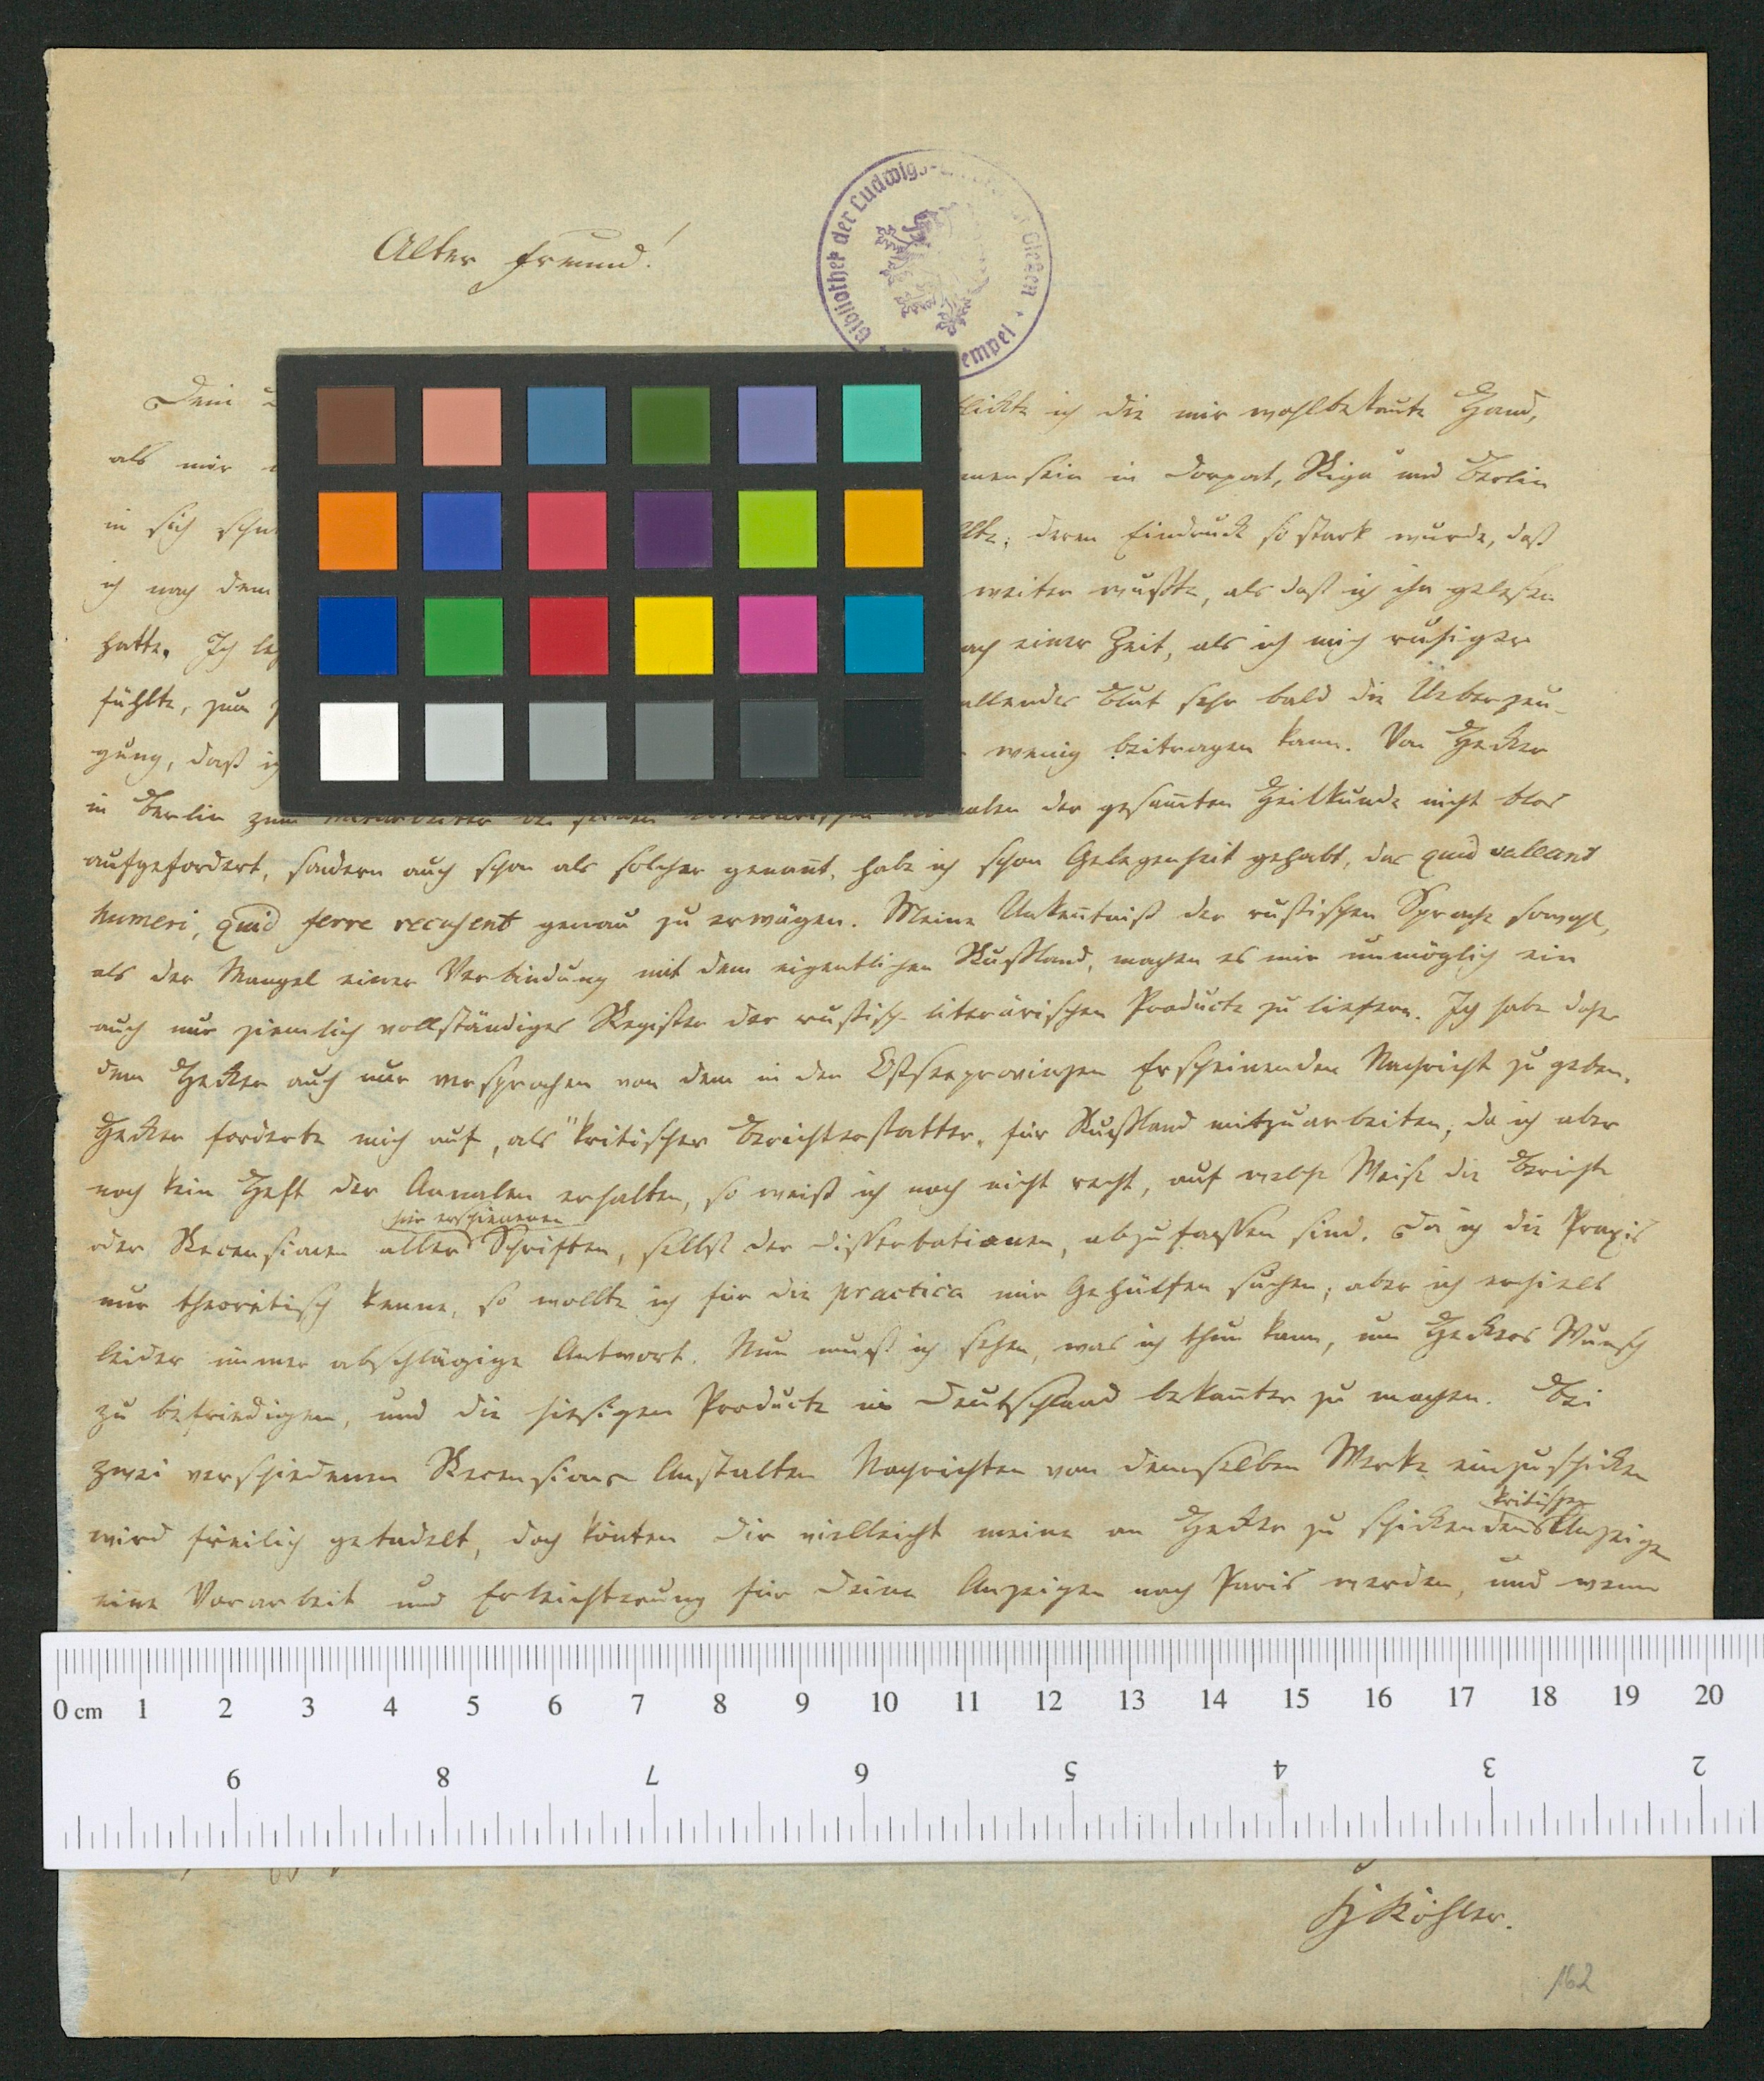 Alter Freund!
Bibliothek der Ludwigs- Gießen
Dein ich die mir wohlbekañte Hand,
als mir in Dorpat, Riga und Berlin
in sich deren Eindruck so stark wurde, daß
ich nach dem weiter wußte, als daß ich ihn gelesen
hatte. Ich einer Zeit, als ich mich ruhiger
fühlte, zum wallendes Blut sehr bald die Ueberzeu-
gung, daß ich wenig beitragen kann. Von Hecker
in Berlin zum Mitarbeiter der gesam̄ten Heilkunde nicht blos
aufgefordert, sondern auch schon als solcher genan̄t, habe ich schon Gelegenheit gehabt, das quid valeant
humeri, quid ferre recusent genau zu erwägen. Meine Unken̄tniß der russischen Sprache sowohl,
als der Mangel einer Verbindung mit dem eigentlichen Rußland, machen es mir unmöglich ein
auch nur ziemlich vollständiges Register der russisch-literärischen Producte zu liefern. Ich habe daher
dem Hecker auch nur versprochen von dem in den Ostseeprovinzen Erscheinenden Nachricht zu geben.
Hecker forderte mich auf, als "kritischer Berichterstatter" für Rußland mitzuarbeiten, da ich aber
noch kein Heft der Annalen erhalten, so weiß ich noch nicht recht, auf welche Weise die Berichte
hier erschienenen
oder Recensionen aller Schriften, selbst der Dissertationen, abzufassen sind. Da ich die Praxis
nur theoretisch kenne, so wollte ich für die practica mir Gehülfen suchen; aber ich erhielt
leider im̄er abschlägige Antwort. Nun muß ich sehen, was ich thun kann, um Heckers Wunsch
zu befriedigen, und die hiesigen Producte in Deutschland bekan̄ter zu machen. Bei
zwei verschiedenen Recensions Anstalten Nachrichten von demselben Werke einzuschicken
kritischen
wird freilich getadelt, doch kön̄ten Dir vielleicht meine an Hecker zu schickenden Anzeigen
eine Vorarbeit und Erleichterung für Deine Anzeigen nach Paris werden, und wenn
0 cm 1 2 3 4 5 6 7 8 9 10 11 12 13 14 15 16 17 18 19 20
9 8 7 6 5 4 3 2
Köhler.
162